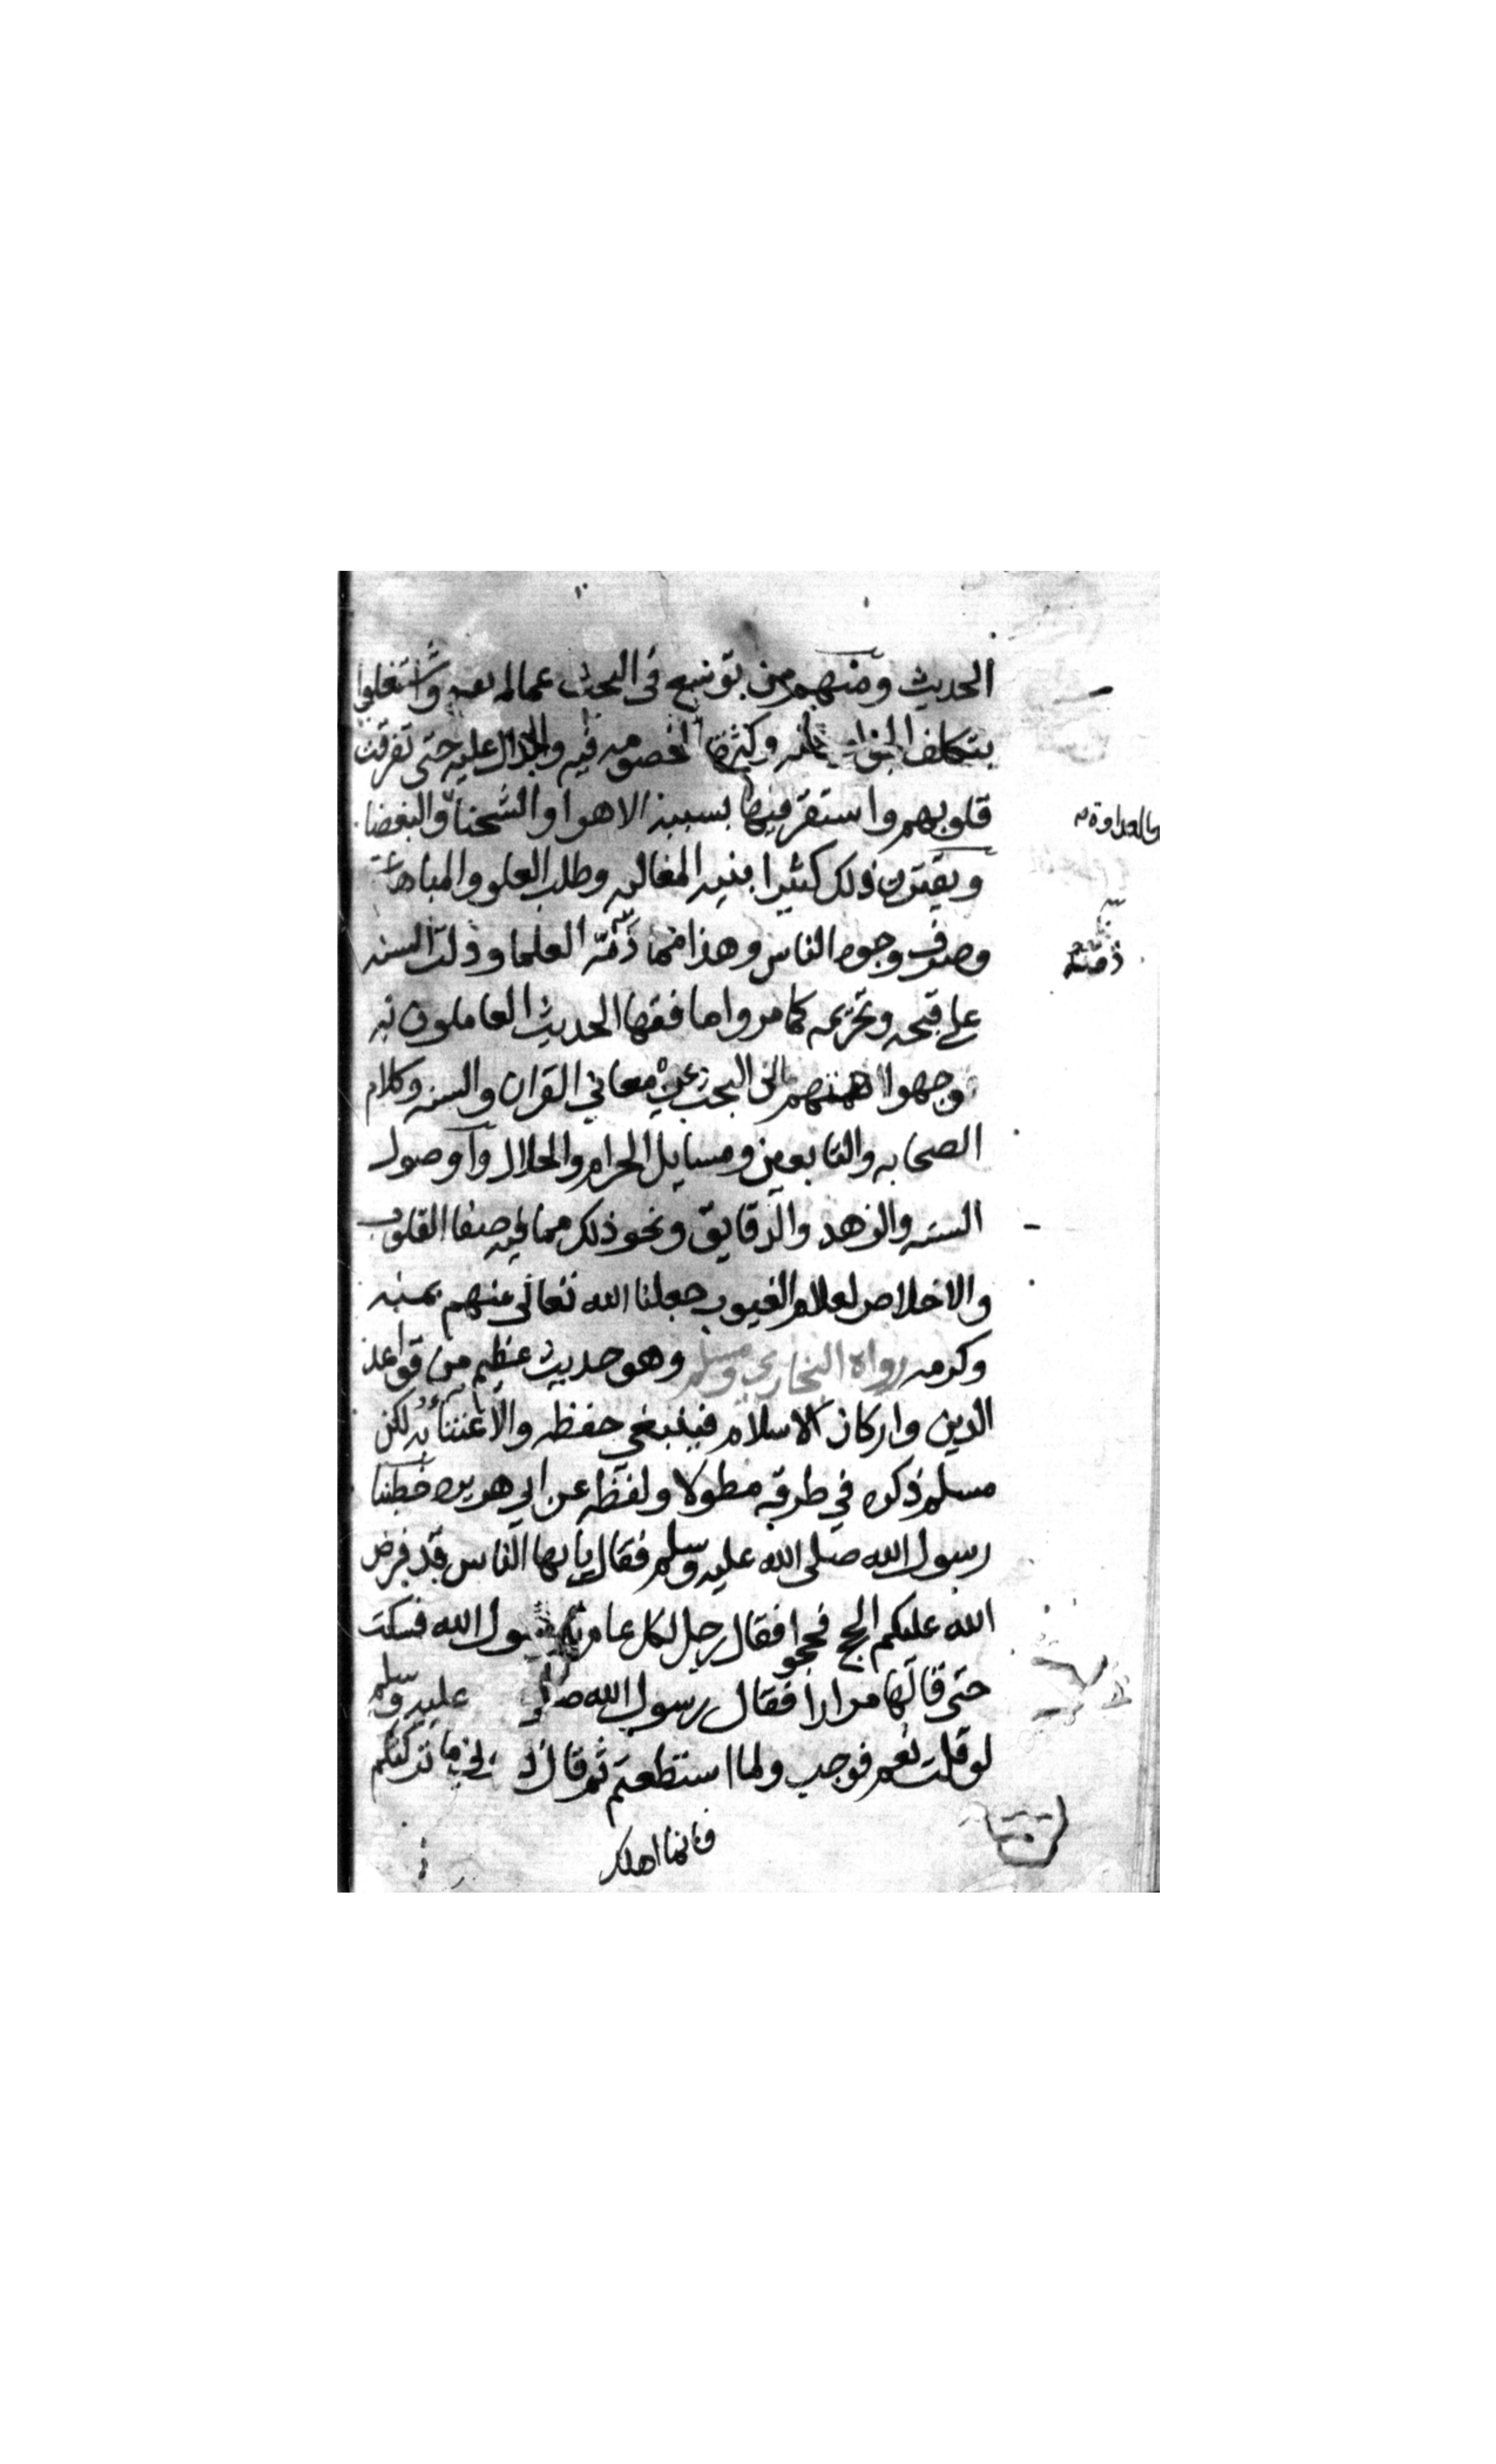 الحديث ومنهم من توسع في البحث عما لم يقع واشتغلوا
بتكلف الجواب عنه وكثرة الخصومه فيه والجدال عليه حتى تفرقت
قلوبهم واستقر فيها بسببه الاهوا والشحنا والبغضا
والعداوة
ويقترن ذلك كثيرا بنيه المغالبه وطلب العلو والمباهات
وصرف وجوه الناس وهذا مما ذمّه العلما ودلت السنه
ذمته
على قبحه وتحريمه كما مر واما فقها الحديث العاملون به
وجهوا همتهم الى البحث عن معاني القران والسنه وكلام
الصحابه والتابعين ومسايل الحرام والحلال واوصول
السنه والزهد والدقايق ونحو ذلك مما فيه صفا القلوب
والاخلاص لعلام الغيوب جعلنا الله تعالى منهم بمنه
وكرمه رواه البخاري ومسلم وهو حديث عظيم من قواعد
الدين واركان الاسلام فينبغي حفظه والاعتنا به لكن
مسلم ذكره في طرقه مطولا ولفظه عن ابي هريره خطبنا
رسول الله صلى الله عليه وسلم فقال يايها الناس قد فرض
الله عليكم الحج فحجوا فقال رجل لكل عام يرسول الله فسكت
حتى قالها مرارا فقال رسول الله صلى عليه وسلم
لو قلت نعم فوجب ولما استطعتم ثم قال ذروني ما تركتكم
فانما اهلك